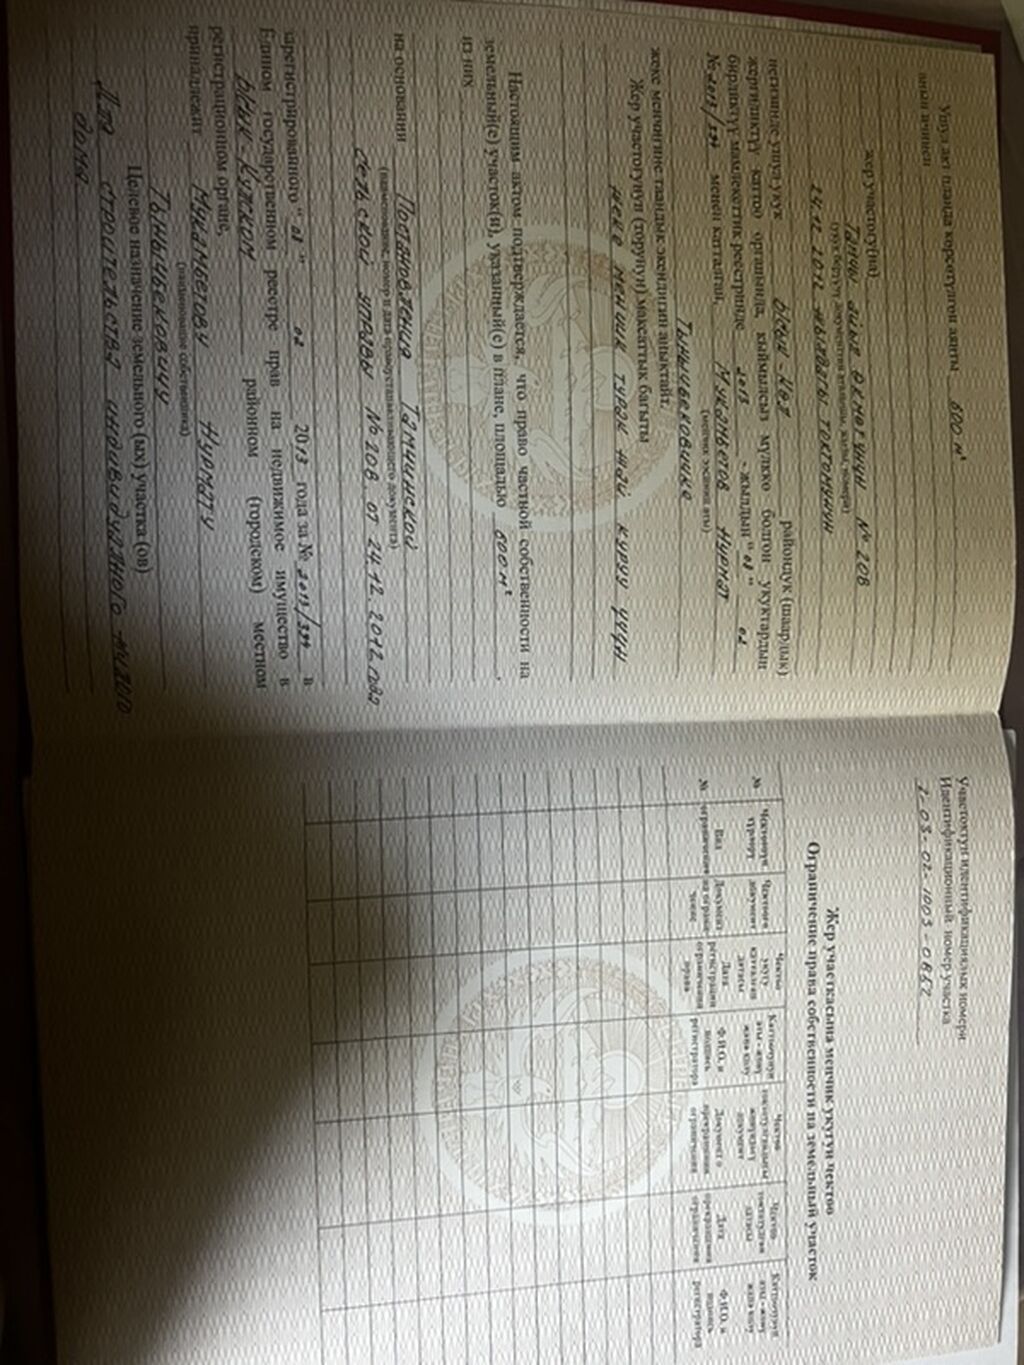 Ушул акт планда көрсөтүлгөн аянты 600 м²
анын ичинен
жер участогу(на)
Тамчы айыл өкмөтүнүн № 208
(укук берүүчү документтин аталышы, жылы, номери)
24.12 2012 жылдагы токтомунун
негизинде ушул укук Ысык-Көл райондук (шаардык)
жергиликтүү каттоо органында, кыймылсыз мүлккө болгон укуктардын
бирдиктүү мамлекеттик реестринде 2013 -жылдын "08" 02
№ 2013/394 менен катталган, Мукамбетов Нурмат
(менчик ээсинин аты)
Тынычбековичке
жеке менчигине таандык экендигин аныктайт.
Жер участогунун (торунун) максаттык багыты
жеке менчик турак жай куруу үчүн
Настоящим актом подтверждается, что право частной собственности на
земельный(е) участок(и), указанный(е) в плане, площадью 600 м²,
из них
на основании Постановления Тамчинской
(наименование, номер и дата правоустанавливающего документа)
сельской управы № 208 от 24.12.2012 года
зарегистрированного "08" 02 2013 года за № 2013/394 в
Едином государственном реестре прав на недвижимое имущество в
Ысык-Кульском районном (городском) местном
регистрационном органе,
принадлежит Мукамбетову Нурмату
(наименование собственника)
Тынычбековичу
Целевое назначение земельного (ых) участка (ов)
Для строительства индивидуального жилого
дома
Участоктун идентификациялык номери
Идентификационный номер участка
2-03-02-1003-0862
Жер участкасына менчик укугун чектөө
Ограничение права собственности на земельный участок
№ Чектөөнүн түрлөрү Чектөөгө документ Чектөө укугу катталган датасы Каттоочунун аты - жөнү жана колу Чектөө токтотулгандыгы жөнүндөгү документ Чектөө токтотулган датасы Каттоочунун аты - жөнү жана колу
№ Вид ограничения Документ на ограничение Дата регистрации ограничения права Ф.И.О. и подпись регистратора Документ о прекращении ограничения Дата прекращения ограничения Ф.И.О. и подпись регистратора